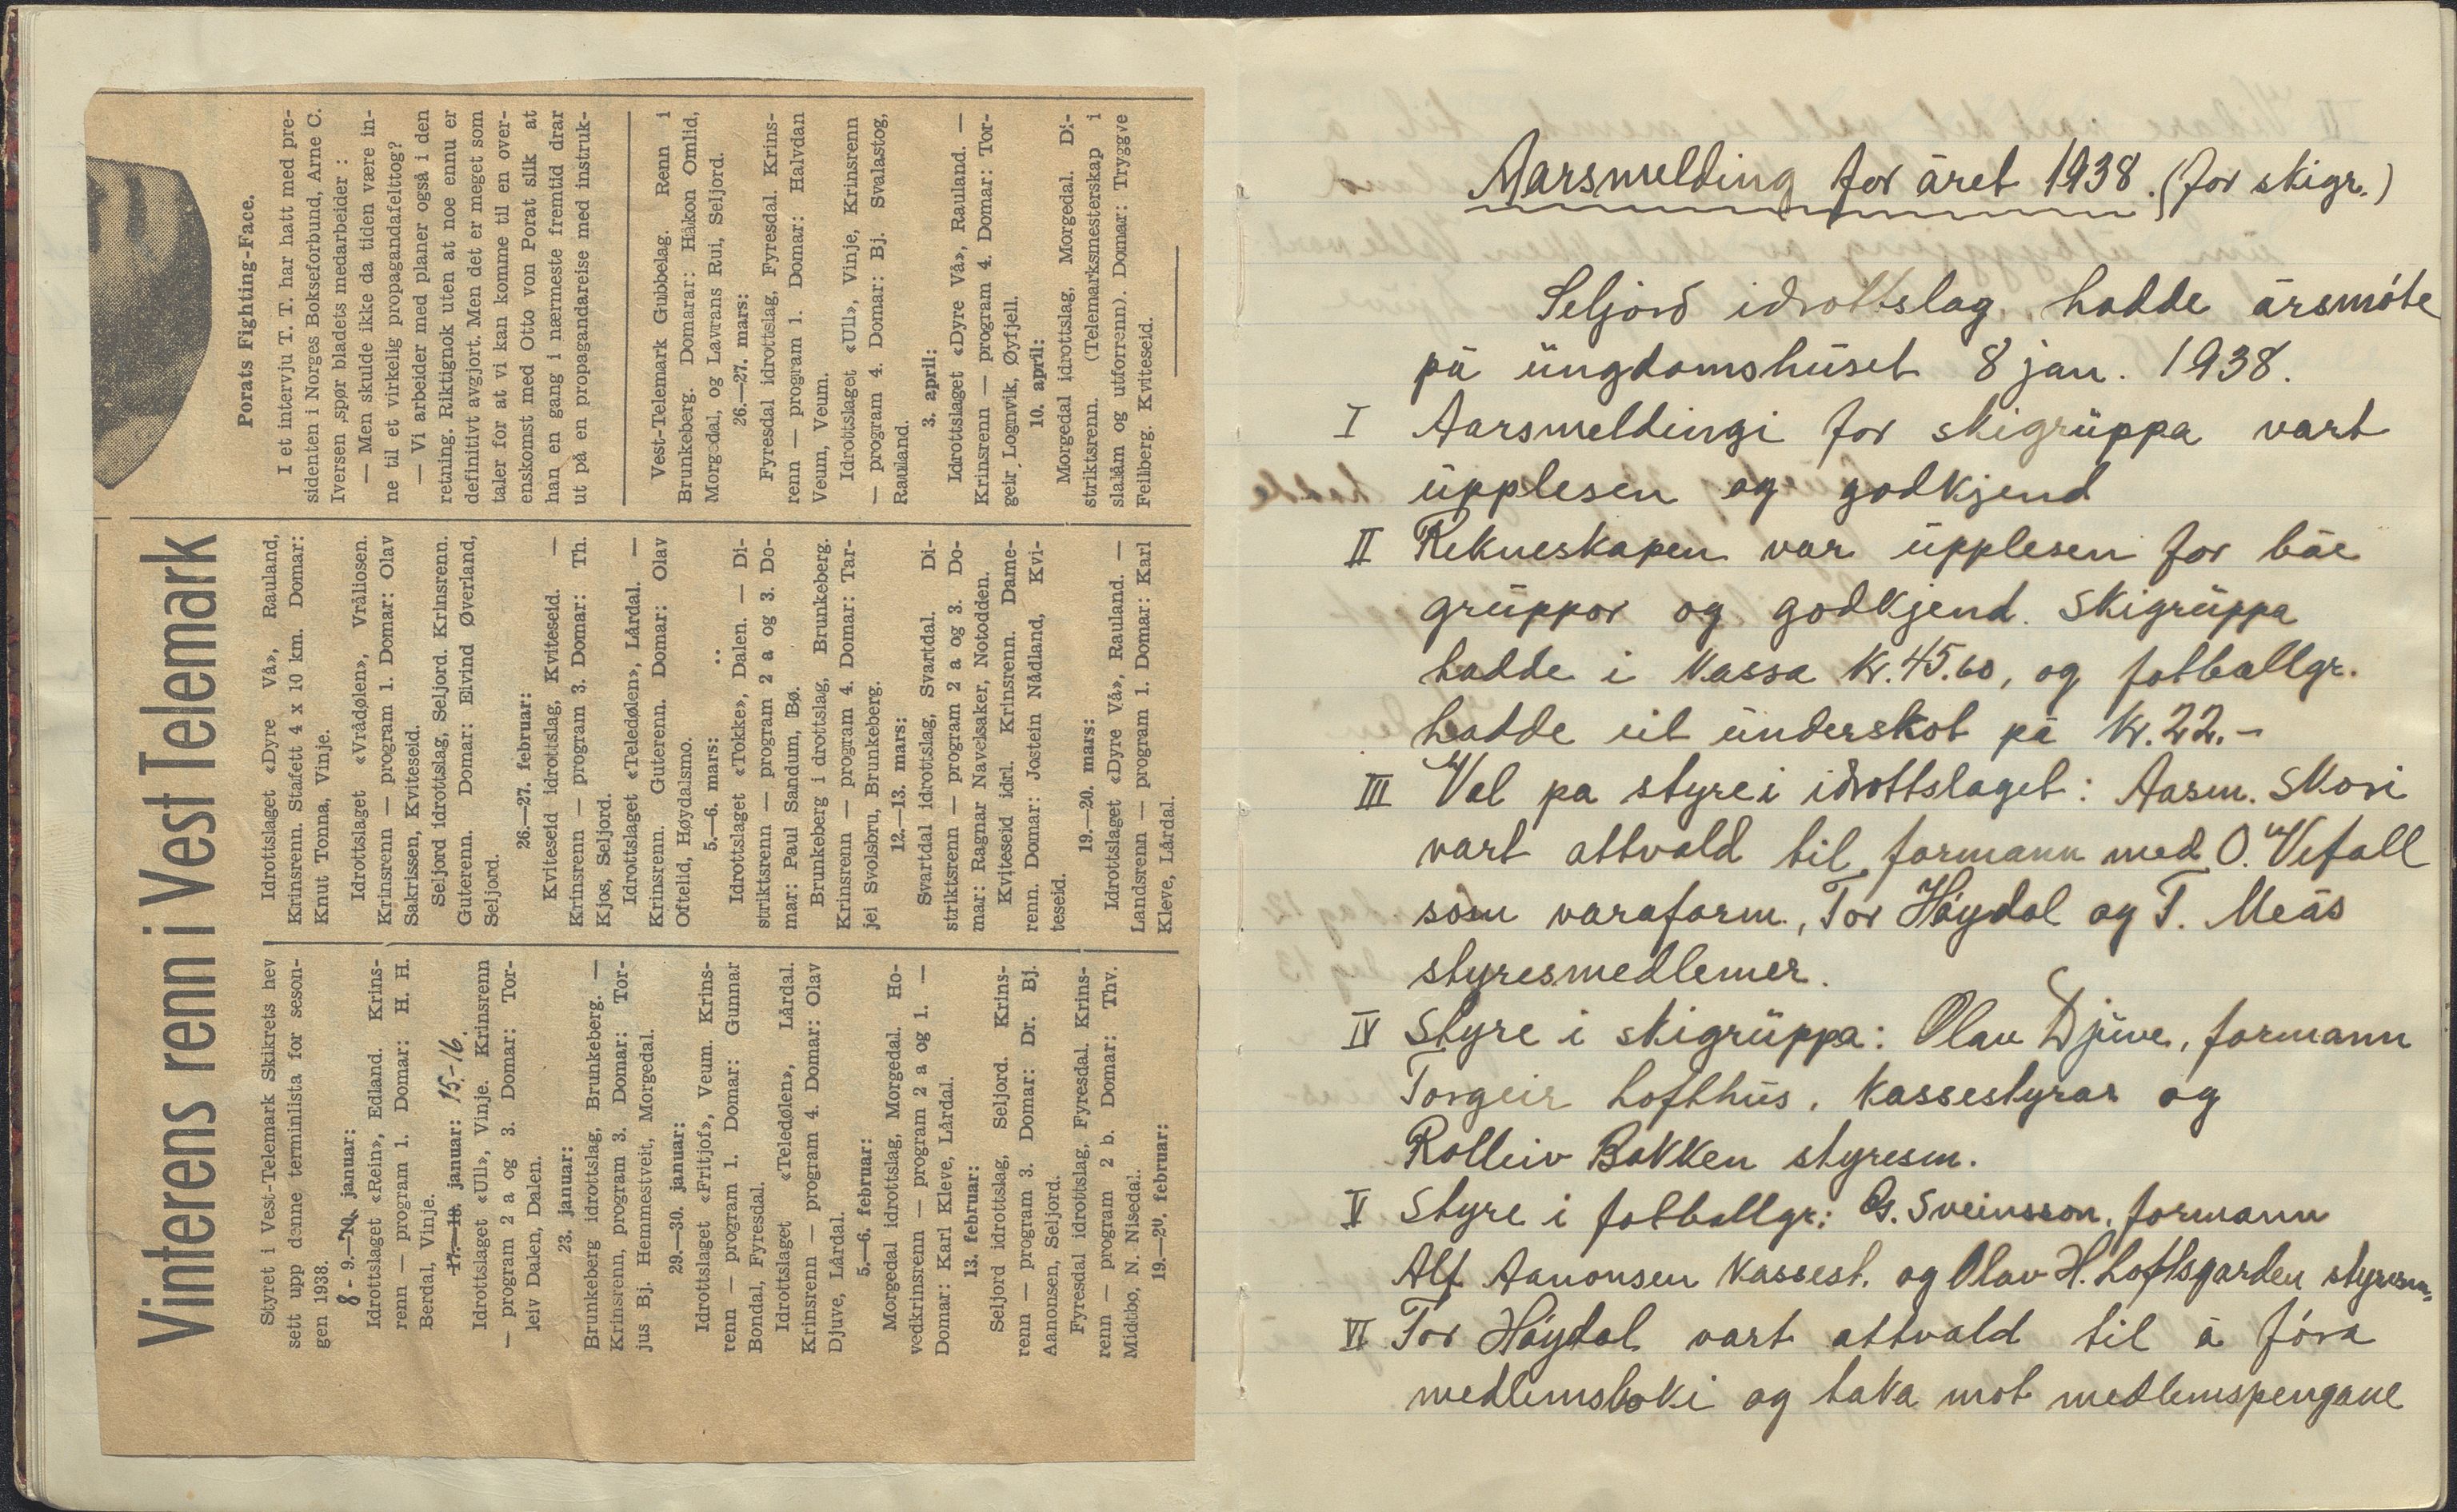 Vinterens renn i Vest Telemark
Styret i Vest-Telemark Skikrets hev
sett upp denne terminlista for seson-
gen 1938.
8 - 9.—10. januar:
Idrottslaget «Rein», Edland. Krins-
renn — program 1. Domar: H. H.
Berdal, Vinje.
17.—18. januar: 15.-16.
Idrottslaget «Ull», Vinje. Krinsrenn
— program 2 a og 3. Domar: Tor-
leiv Dalen, Dalen.
23. januar:
Brunkeberg idrottslag, Brunkeberg. —
Krinsrenn, program 3. Domar: Tor-
jus Bj. Hemmestveit, Morgedal.
29.—30. januar:
Idrottslaget «Fritjof», Veum. Krins-
renn — program 1. Domar: Gunnar
Bondal, Fyresdal.
Idrottslaget «Teledølen», Lårdal.
Krinsrenn — program 4. Domar: Olav
Djuve, Lårdal.
5.—6. februar:
Morgedal idrottslag, Morgedal. Ho-
vedkrinsrenn — program 2 a og 1. —
Domar: Karl Kleve, Lårdal.
13. februar:
Seljord idrottslag, Seljord. Krins-
renn — program 3. Domar: Dr. Bj.
Aanonsen, Seljord.
Fyresdal idrottslag, Fyresdal. Krins-
renn — program 2 b. Domar: Thv.
Midtbø, N. Nisedal.
19.—20. februar:
Idrottslaget «Dyre Vå», Rauland,
Krinsrenn. Stafett 4 x 10 km. Domar:
Knut Tonna, Vinje.
Idrottslaget «Vrådølen», Vråliosen.
Krinsrenn — program 1. Domar: Olav
Sakrissen, Kviteseid.
Seljord idrottslag, Seljord. Krinsrenn.
Guterenn. Domar: Eivind Øverland,
Seljord.
26.—27. februar:
Kviteseid idrottslag, Kviteseid. —
Krinsrenn — program 3. Domar: Th.
Kjos, Seljord.
Idrottslaget «Teledølen», Lårdal. —
Krinsrenn. Guterenn. Domar: Olav
Oftelid, Høydalsmo.
5.—6. mars:
Idrottslaget «Tokke», Dalen. — Di-
striktsrenn — program 2 a og 3. Do-
mar: Paul Sandum, Bø.
Brunkeberg i drottslag, Brunkeberg.
Krinsrenn — program 4. Domar: Tar-
jei Svolsbru, Brunkeberg.
12.—13. mars:
Svartdal idrottslag, Svartdal. Di-
striktsrenn — program 2 a og 3. Do-
mar: Ragnar Naveksaker, Notodden.
Kviteseid idrl. Krinsrenn. Dame-
renn. Domar: Jostein Nådland, Kvi-
teseid.
19.—20. mars:
Idrottslaget «Dyre Vå», Rauland. —
Landsrenn — program 1. Domar: Karl
Kleve, Lårdal.
Porats Fighting-Face.
I et intervju T. T. har hatt med pre-
sidenten i Norges Bokseforbund, Arne C.
Iversen ,spør bladets medarbeider :
— Men skulde ikke da tiden være in-
ne til et virkelig propagandafelttog?
— Vi arbeider med planer også i den
retning. Riktignok uten at noe ennu er
definitivt avgjort. Men det er meget som
taler for at vi kan komme til en over-
enskomst med Otto von Porat slik at
han en gang i nærmeste fremtid drar
ut på en propagandareise med instruk-
Vest-Telemark Gubbelag. Renn i
Brunkeberg. Domarar: Håkon Omlid,
Morgedal, og Lavrans Rui, Seljord.
26.—27. mars:
Fyresdal idrottslag, Fyresdal. Krins-
renn — program 1. Domar: Halvdan
Veum, Veum.
Idrottslaget «Ull», Vinje, Krinsrenn
— program 4. Domar: Bj. Svalastog,
Rauland.
3. april:
Idrottslaget «Dyre Vå», Rauland. —
Krinsrenn — program 4. Domar: Tor-
geir Lognvik, Øyfjell.
10. april:
Morgedal idrottslag, Morgedal. Di-
striktsrenn. (Telemarksmesterskap i
slalåm og utforrenn). Domar: Tryggve
Feilberg. Kviteseid.
Aarsmelding for året 1938. (for skigr.)
Seljord idrottslag hadde årsmöte
på ungdomshuset 8 jan. 1938.
I Aarsmeldingi for skigruppa vart
upplesen og godkjend
II Rekneskapen var upplesen for båe
gruppor og godkjend. Skigruppa
hadde i kassa kr. 45.60, og fotballgr.
hadde eit underskot på kr. 22.-
III Val pa styre i idrottslaget: Aasm. Skori
vart attvald til formann med O. Vefall
som varaform., Tor Höydal og T. Meås
styresmedlemer.
IV Styre i skigruppa: Olav Djuve, formann
Torgeir Lofthus, kassestyrar og
Rolleiv Bakken styresm.
V Styre i fotballgr: Gs. Sveinsson, formann
Alf Aanonsen kassest. og Olav H. Loftsgarden styresm.
VI Tor Höydal vart attvald til å föra
medlemsboki og taka mot medlemspengane